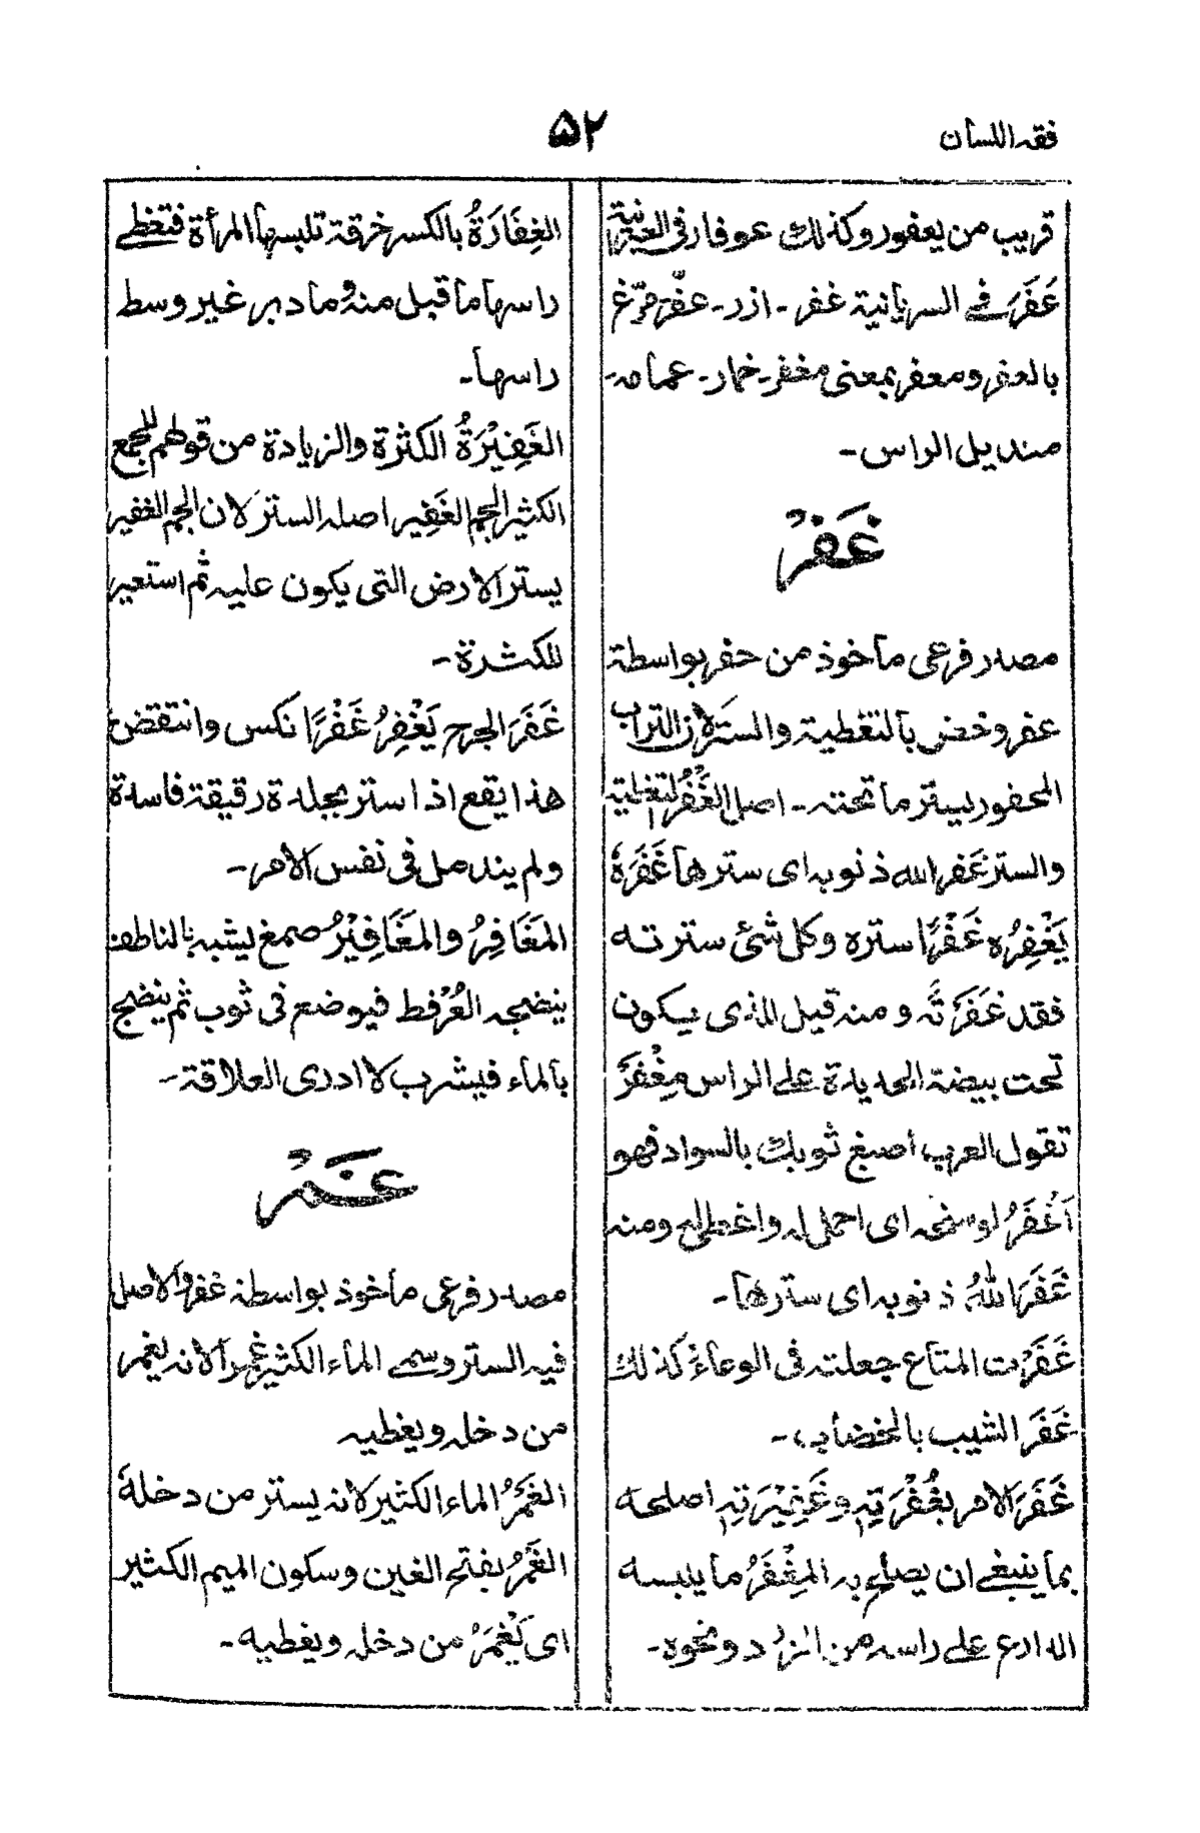 فقه اللسان
۵۲
قريب من يعفور وكذلك عوفار فى العبرانية
عَفَرَ فے السريانية غفر - ازر - عفّر مرّغ
بالعفر ومعفر بمعنى مغفر - خمار - عمامه -
منديل الراس -
غَفَرُ
مصدر فرعى مأخوذ من حفر بواسطة
عفر وخض بالتغطية والستر لان التراب
المحفور يستر ما تحته - اصل الغَفْرُ التغطية
والستر غفر الله ذنوبه اى سترها غَفَرَهٗ
يَغْفِرُه غَفْرًا ستره وكل شئ سترته
فقد غَفَرْتَهٗ ومنه قيل للذى يكون
تحت بيضة الحديدة على الراس مِغْفَرٌ
تقول العرب أصبغ ثوبك بالسواد فهو
اَغْفَرُ لوسخه اى احمل له واغطى له ومنه
غَفَرَ اللهُ ذنوبه اى سترها -
غَفَرْت المتاع جعلته فى الوعاء وكذلك
غَفَرَ الشيب بالخضاب -
غَفَرَ الامر بغُفْرَتِهٖ وغَفِيْرَتِهٖ اصلحه
بما ينبغى ان يصلح به المِغْفَرُ ما يلبسه
الدارع على راسه من الزرد ونحوه -
الغِفَارَةُ بالكسر خرقة تلبسها المرأة فتغطى
راسها ما قبل منه وما دبر غير وسط
راسها -
الغَفِيْرَةُ الكثرة والزيادة من قولهم للجمع
الكثير الجم الغَفِير اصله الستر لان الجم الغفير
يستر الارض التى يكون عليه ثم استعير
للكثرة -
غَفَرَ الجرح يَغْفِرُ غَفْرًا نكس وانتقض و
هذا يقع اذا ستر بجلدة رقيقة فاسدة
ولم يندمل فى نفس الامر -
المَغَافِرُ والمَغَافِيْرُ صمغ يشبه بالناطف
ينضجه العُرْفط فيوضع فى ثوب ثم ينضج
بالماء فيشرب لا ادرى العلاقة -
غَمَرُ
مصدر فرعى مأخوذ بواسطة غفر والاصل
فيه الستر وسمى الماء الكثير غمرا لانه يغمر
من دخله ويغطيه
الغَمْرُ الماء الكثير لانه يستر من دخلهٗ
الغَمْرُ بفتح الغين وسكون الميم الكثير
اى يَغْمَرُ من دخله ويغطيه -